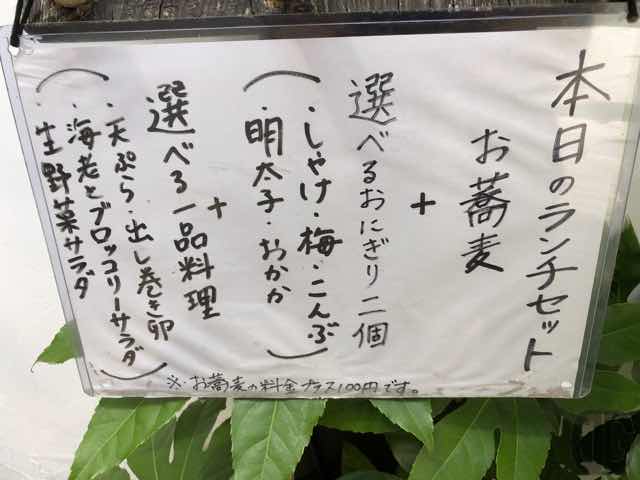 本日のランチセット
お蕎麦
+
選べるおにぎり二個
(・しゃけ・梅・こんぶ
・明太子・おかか)
+
選べる一品料理
(・天ぷら・出し巻き卵
・海老とブロッコリーサラダ
・生野菜サラダ)
※・お蕎麦の料金プラス100円です。